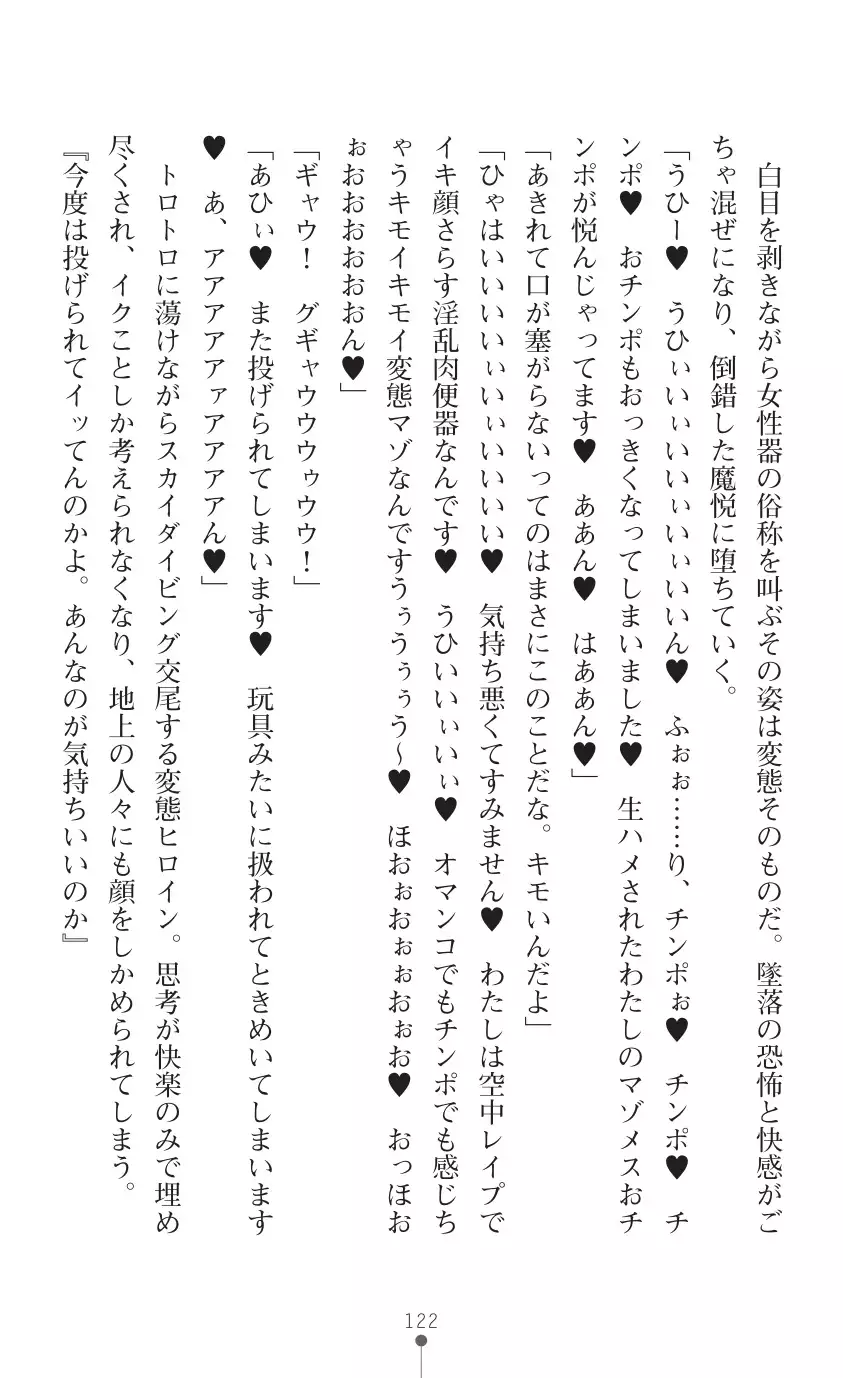 白目を剥きながら女性器の俗称を叫ぶその姿は変態そのものだ。墜落の恐怖と快感がご
ちゃ混ぜになり、倒錯した魔悦に堕ちていく。
「うひー♥　うひぃいぃいぃいぃいぃいいん♥　ふぉぉ……り、チンポぉ♥　チンポ♥　チ
ンポ♥　おチンポもおっきくなってしまいました♥　生ハメされたわたしのマゾメスおチ
ンポが悦んじゃってます♥　ああん♥　はああん♥」
「あきれて口が塞がらないってのはまさにこのことだな。キモいんだよ」
「ひゃはいいいいぃいぃいいいい♥　気持ち悪くてすみません♥　わたしは空中レイプで
イキ顔さらす淫乱肉便器なんです♥　うひいいぃいぃ♥　オマンコでもチンポでも感じち
ゃうキモイキモイ変態マゾなんですうぅうぅぅう～♥　ほおぉおぉぉおぉお♥　おっほお
ぉおおおおおおん♥」
「ギャウ！　グギャウウウゥウウ！」
「あひぃ♥　また投げられてしまいます♥　玩具みたいに扱われてときめいてしまいます
♥　あ、アアアアアァアアアアん♥」
トロトロに蕩けながらスカイダイビング交尾する変態ヒロイン。思考が快楽のみで埋め
尽くされ、イクことしか考えられなくなり、地上の人々にも顔をしかめられてしまう。
『今度は投げられてイッてんのかよ。あんなのが気持ちいいのか』
122